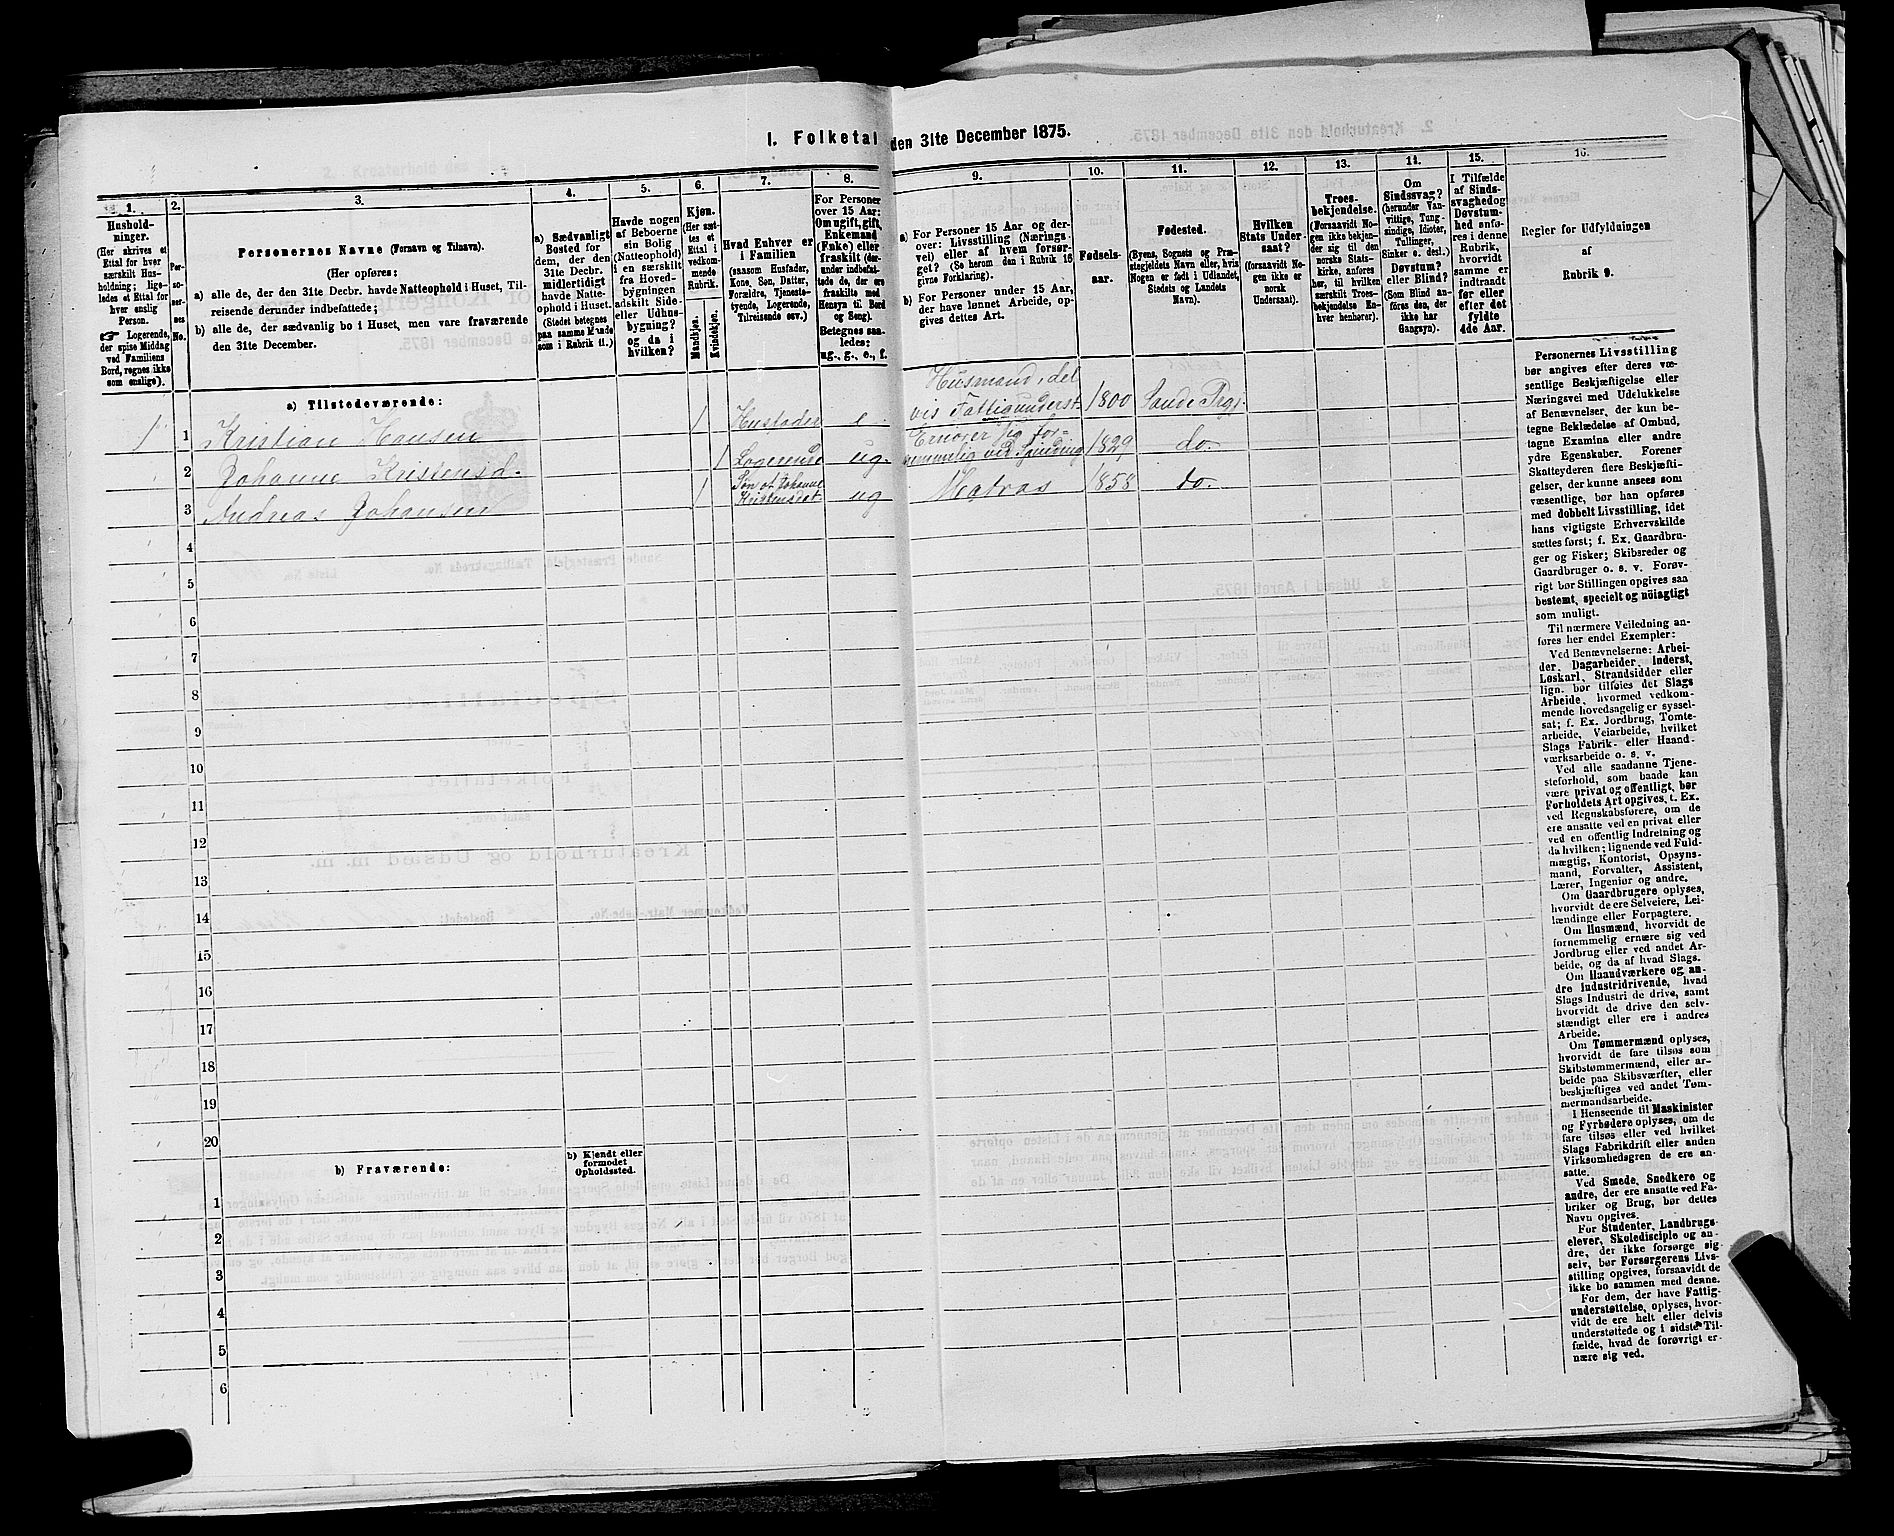 I. Folketal den 31te December 1875.
1.
2.
3.
4.
5.
6.
7.
8.
9.
10.
11.
12.
13.
14.
15.
16.
Hushold-
ninger.
(Her skrives et
Ettal for hver
særskilt Hus-
holdning; lige-
ledes et Ettal for
hver enslig
Person.
Logerende,
der spise Middag
ved Familiens
Bord, regnes ikke
som enslige).
Personernes Navne (Fornavn og Tilnavn).
(Her opføres:
a) alle de, der den 31te Decbr. havde Natteophold i Huset, Til-
reisende derunder indbefattede;
b) alle de, der sædvanlig bo i Huset, men vare fraværende
den 31te December.
a) Sædvanligt
Bosted for
dem, der den
31te Decbr.
midlertidigt
havde Natte-
ophold i Huset.
(Stedet betegnes
paa samme Maade
som i Rubrik 11.)
Havde nogen
af Beboerne
sin Bolig
(Natteophold)
i en særskilt
fra Hoved-
bygningen
adskilt Side-
eller Udhus-
bygning?
og da i
hvilken?
Kjøn.
(Her sæt-
tes et
Ettal i
vedkom-
mende
Rubrik.
Mandkjøn.
Kvindekjøn.
Hvad Enhver er
i Familien
(saasom Husfader,
Kone, Søn, Datter,
Forældre, Tjeneste-
tyende, Logerende,
Tilreisende osv.)
For Personer
over 15 Aar:
Om ugift, gift,
Enkemand
(Enke) eller
fraskilt (der-
under indbefat-
tede de, der ere
fraskilte med
Hensyn til Bord
og Seng).
Betegnes saa-
ledes:
ug., g., e., f.
a) For Personer 15 Aar og der-
over: Livsstilling (Nærings-
vei) eller af hvem forsør-
get? (Se herom den i Rubrik 16
givne Forklaring).
b) For Personer under 15 Aar,
der have lønnet Arbeide, op-
gives dettes Art.
Fødsels-
aar.
Fødested.
(Byens, Sognets og Præ-
stegjeldets Navn eller, hvis
Nogen er født i Udlandet,
Stedets og Landets
Navn).
Hvilken
Stats Under-
saat?
(forsaavidt No-
gen ikke er
norsk
Undersaat).
Troes-
bekjendelse.
(Forsaavidt No-
gen ikke bekjen-
der sig til den
norske Stats-
kirke, anføres
her, til hvilken
særskilt Troes-
bekjendelse En-
hver henhører).
Om
Sindssvag?
(herunder Van-
vittige, Tung-
sindige, Idioter,
Tullinger,
Sinker o. desl.)
Døvstum?
eller Blind?
(Som Blind an-
føres den, der
ikke har
Gangsyn).
I Tilfælde
af Sinds-
svaghed og
Døvstum-
hed anfø-
res i denne
Rubrik,
hvorvidt
samme er
indtraadt
før eller
efter det
fyldte
4de Aar.
Regler for Udfyldningen
af
Rubrik 9.
a) Tilstedeværende:
1 1 Kristian Hansen 1 Husfader e. Husmand, del vis Fattigunderst. 1800 Sande Prgj.
2 Johanne Kristensd. 1 Logerende ug. Ernærer sig for- nemmelig ved Spinding 1829 do.
3 Andreas Johansen 1 Søn af Johanne Kristensdat ug Matros 1858 do.
4
5
6
7
8
9
10
11
12
13
14
15
16
17
18
19
20
b) Fraværende:
b) Kjendt eller
formodet
Opholdssted.
1
2
3
4
5
6
Personernes Livsstilling
bør angives efter deres væ-
sentlige Beskjæftigelse eller
Næringsvei med Udelukkelse
af Benævnelser, der kun be-
tegne Beklædelse af Ombud,
tagne Examina eller andre
ydre Egenskaber. Forener
Skatteyderen flere Beskjæfti-
gelser, der kunne ansees som
væsentlige, bør han opføres
med dobbelt Livsstilling, idet
hans vigtigste Erhvervskilde
sættes først; f. Ex. Gaardbru-
ger og Fisker; Skibsreder og
Gaardbruger o. s. v. Forøv-
rigt bør Stillingen opgives saa
bestemt, specielt og nöiagtigt
som muligt.
Til nærmere Veiledning an-
føres her endel Exempler:
Ved Benævnelserne: Arbei-
der, Dagarbeider, Inderst,
Løskarl, Strandsidder eller
lign. bør tilføies det Slags
Arbeide, hvormed vedkom-
mende hovedsagelig er syssel-
sat; f. Ex. Jordbrug, Tomte-
arbeide, Veiarbeide, hvilket
Slags Fabrik- eller Haand-
værksarbeide o. s. v.
Ved alle saadanne Tjene-
steforhold, som baade kan
være privat og offentligt, bør
Forholdets Art opgives, t. Ex.
ved Regnskabsførere, om de
ere ansatte ved en privat eller
ved en offentlig Indretning og
da hvilken; lignende ved Fuld-
mægtig, Kontorist, Opsyns-
mand, Forvalter, Assistent,
Lærer, Ingeniør og andre.
Om Gaardbrugere oplyses,
hvorvidt de ere Selveiere, Lei-
lændinge eller Forpagtere.
Om Husmænd, hvorvidt de
fornemmelig ernære sig ved
Jordbrug eller ved andet Ar-
beide, og da af hvad Slags.
Om Haandværkere og an-
dre Industridrivende, hvad
Slags Industri de drive, samt
hvorvidt de drive den selv-
stændigt eller ere i andres
Arbeide.
Om Tømmermænd oplyses,
hvorvidt de fare tilsøs som
Skibstømmermænd, eller ar-
beide paa Skibsværfter, eller
beskjæftiges ved andet Tøm-
mermandsarbeide.
I Henseende til Maskinister
og Fyrbødere oplyses, om de
fare tilsøs eller ved hvilket
Slags Fabrikdrift eller anden
Virksomhedsgren de ere an-
satte.
Ved Smede, Snedkere og
andre, der ere ansatte ved Fa-
briker og Brug, bør dettes
Navn opgives.
For Studenter, Landbrugs-
elever, Skoledisciple og an-
dre, der ikke forsørge sig
selv, bør Forsørgerens Livs-
stilling opgives, forsaavidt de
ikke bo sammen med denne.
For dem, der have Fattig-
understøttelse, oplyses, hvor-
vidt de ere helt eller delvis
understøttede og i sidste Til-
fælde, hvad de forøvrigt er-
nære sig ved.